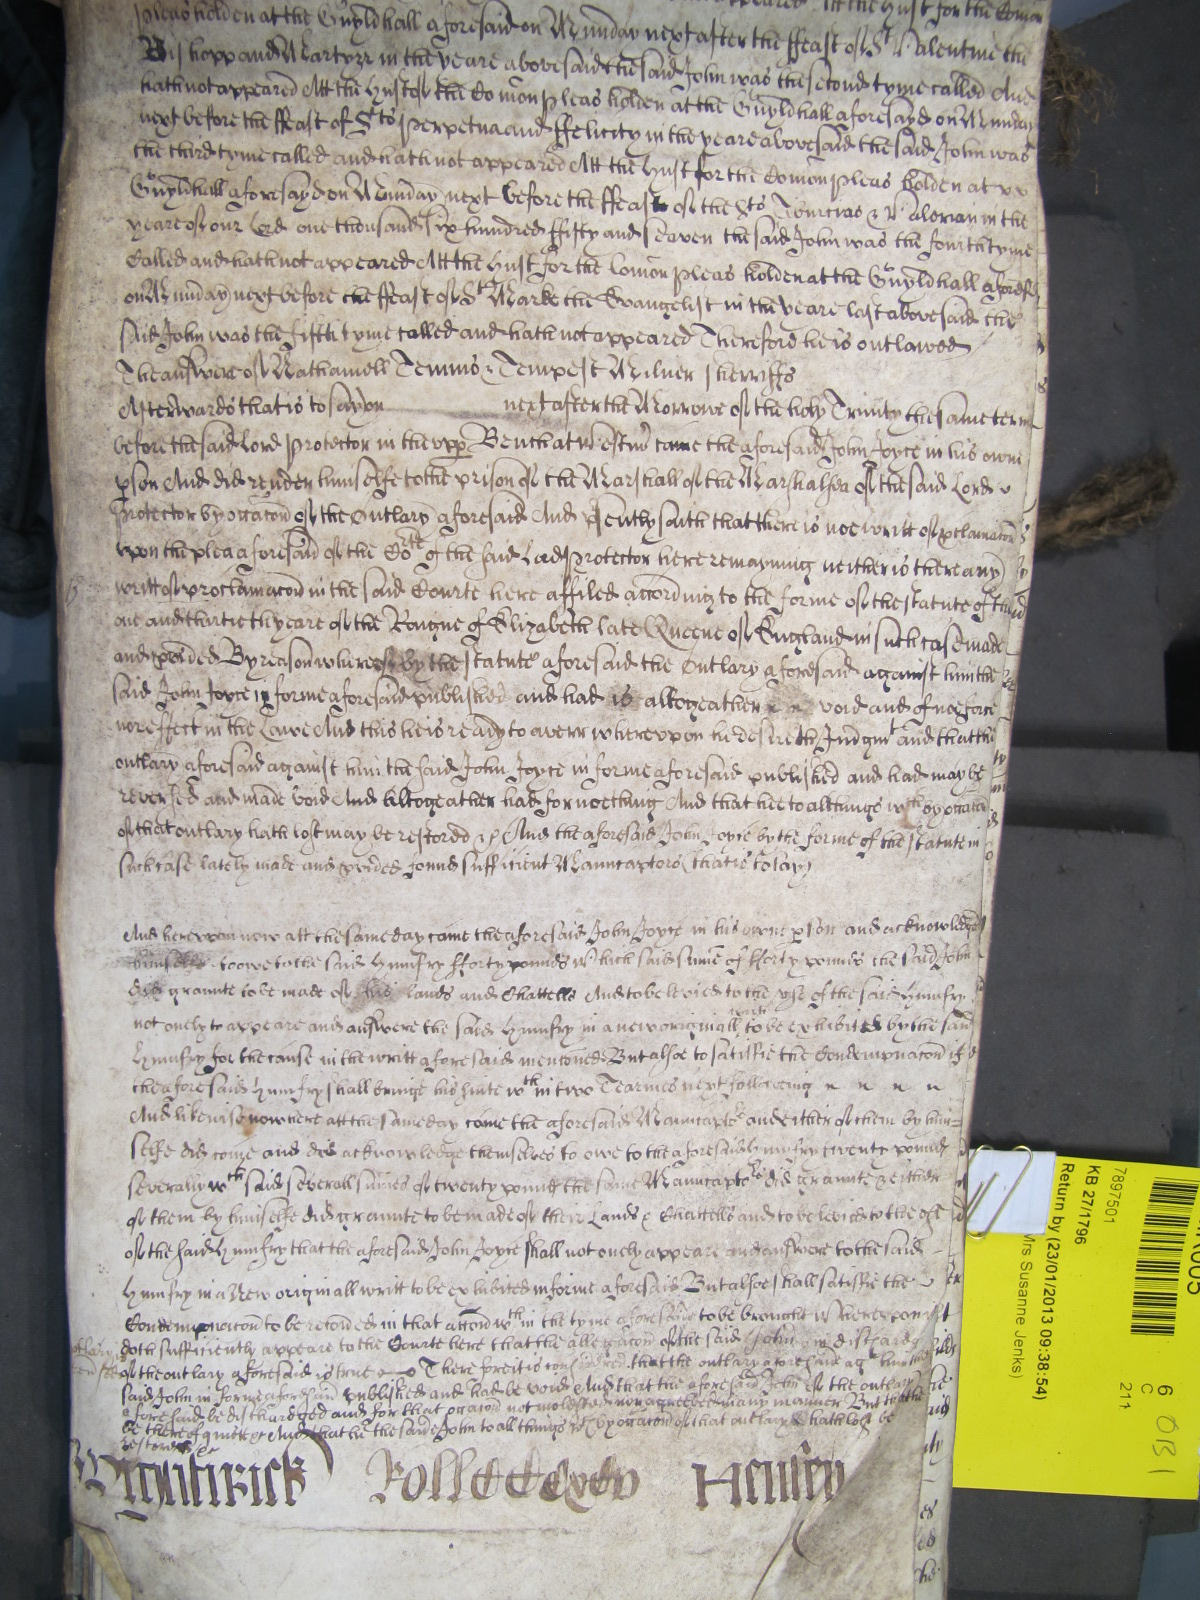 pleas holden at the Guyldhall aforesaid on Munday next after the ffeast of St Valentine the
Bishopp and Martyrr in the yeare abovesaid the said John was the second tyme called And
hath not appeared Att the Hust of the Comon pleas holden at the Guyldhall aforesayd on Munday
next before the ffeast of Sts Perpetua and ffelicity in the yeare abovesaid the said John was
the third tyme called and hath not appeared Att the Hust for the Comon pleas holden at
Guyldhall aforesayd on Munday next before the ffeast of the Sts Tiburcius & Valerian in the
yeare of our Lord one thousand six hundred ffifty and seaven the said John was the fourth tyme
Called and hath not appeared Att the Hust for the Comon pleas holden at the Guyldhall aforesd
on Munday next before the ffeast of St Marke the Evangelist in the yeare last abovesaid the
said John was the fifth tyme called and hath not appeared Therefore he is outlawed
The answere of Nathaniell Temms & Tempest Milner sherriffs
Afterwards that is to say on next after the Morrowe of the holy Trinity the same terme
before the said Lord Protector in the upp Bench at Westmr came the aforesaid John Joyce in his owne
pson And did render himselfe to the prison of the Marshall of the Marshalsea of the said Lord
Protector by occacon of the Outlary aforesaid And psently saith that there is noe writt of pclamacon
upon the plea aforesaid of the Corte of the said Lord Protector here remayning neither is there any
writt of proclamacon in the said Courte here affiled according to the forme of the statute of the
one and thirtieth yeare of the Reigne of Elizabeth late Queene of England in such case made
and pvided By reason whereof by the statute aforesaid the Outlary aforesaid against him the
said John Joyce in forme aforesaid published and had is altogeather void and of noe force
nor effect in the Lawe And this he is ready to averr whereupon he desireth Judgmt and that the
outlary aforesaid against him the said John Joyce in forme aforesaid published and had may be
reversed and made void And altogeather had for nothing And that hee to all things wch by occacon
of that outlary hath lost may be restored &c And the aforesaid John Joyce by the forme of the statute in
such case lately made and pvided found sufficient Mainucaptors (that is to say)
And hereupon now att the same day came the aforesaid John Joyce in his owne pson and acknowledged
himselfe to owe to the said Humfry fforty pounds wch said sume of fforty pounds the said John
did graunte to be made of his lands and Chattells And to be levied to the use of the said Humfry
not onely to appeare and answere the said Humfry in a new originall writt to be exhibited by the said
Humfry for the cause in the writt aforesaid mentoned But alsoe to satisfie the Condempnacon if
the aforesaid Humfry shall bringe his suite wthin two Tearmes next following
And likewise now here att the same day come the aforesaid Mainucaptors and either of them by him=
selfe did come and did acknowledge themselves to owe to the aforesaid Humfry twenty pounds
severally wch said severall sumes of twenty pounds the same Mainucaptors did graunte & either
of them by himselfe did graunte to be made of their Lands & Chattells and to be levied to the use
of the said Humfry that the aforesaid John Joyce shall not onely appeare and answere to the said
Humfry in a New originall writt to be exhibited in forme aforesaid But alsoe shall satisfie the
Condempnacon to be recoved in that accon wthin the tyme aforesaid to be brought Whereupon it
doth sufficiently appeare to the Courte here that the allegacon of the said John in discharge
of the outlary aforesaid is true Therefore it is considered that the outlary aforesaid agt him the
said John in forme aforesaid published and had be void And that the aforesaid John of the outlary
aforesaid be discharged and for that occacon not molested nor agreeved in any manner But that he
be thereof quitt &c And that he the same John to all things wch by occacon of that outlary hath lost be
restored &c
Wightwick Roll CCCCxxv Henley
7897501
KB 27/1796
Return by (23/01/2013 09:38:54)
Mrs Susanne Jenks)
6
C
211
OB1